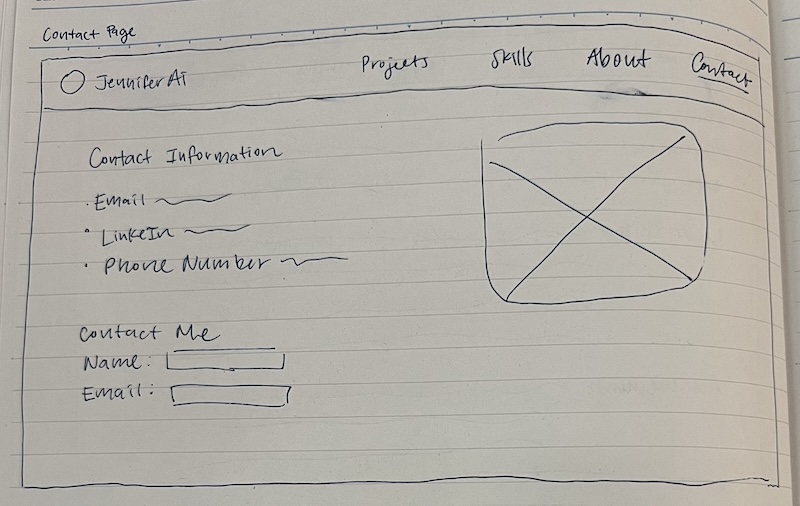 Contact Page
Jennifer Ai Projects Skills About Contact
Contact Information
· Email
· LinkeIn
· Phone Number
Contact Me
Name:
Email: